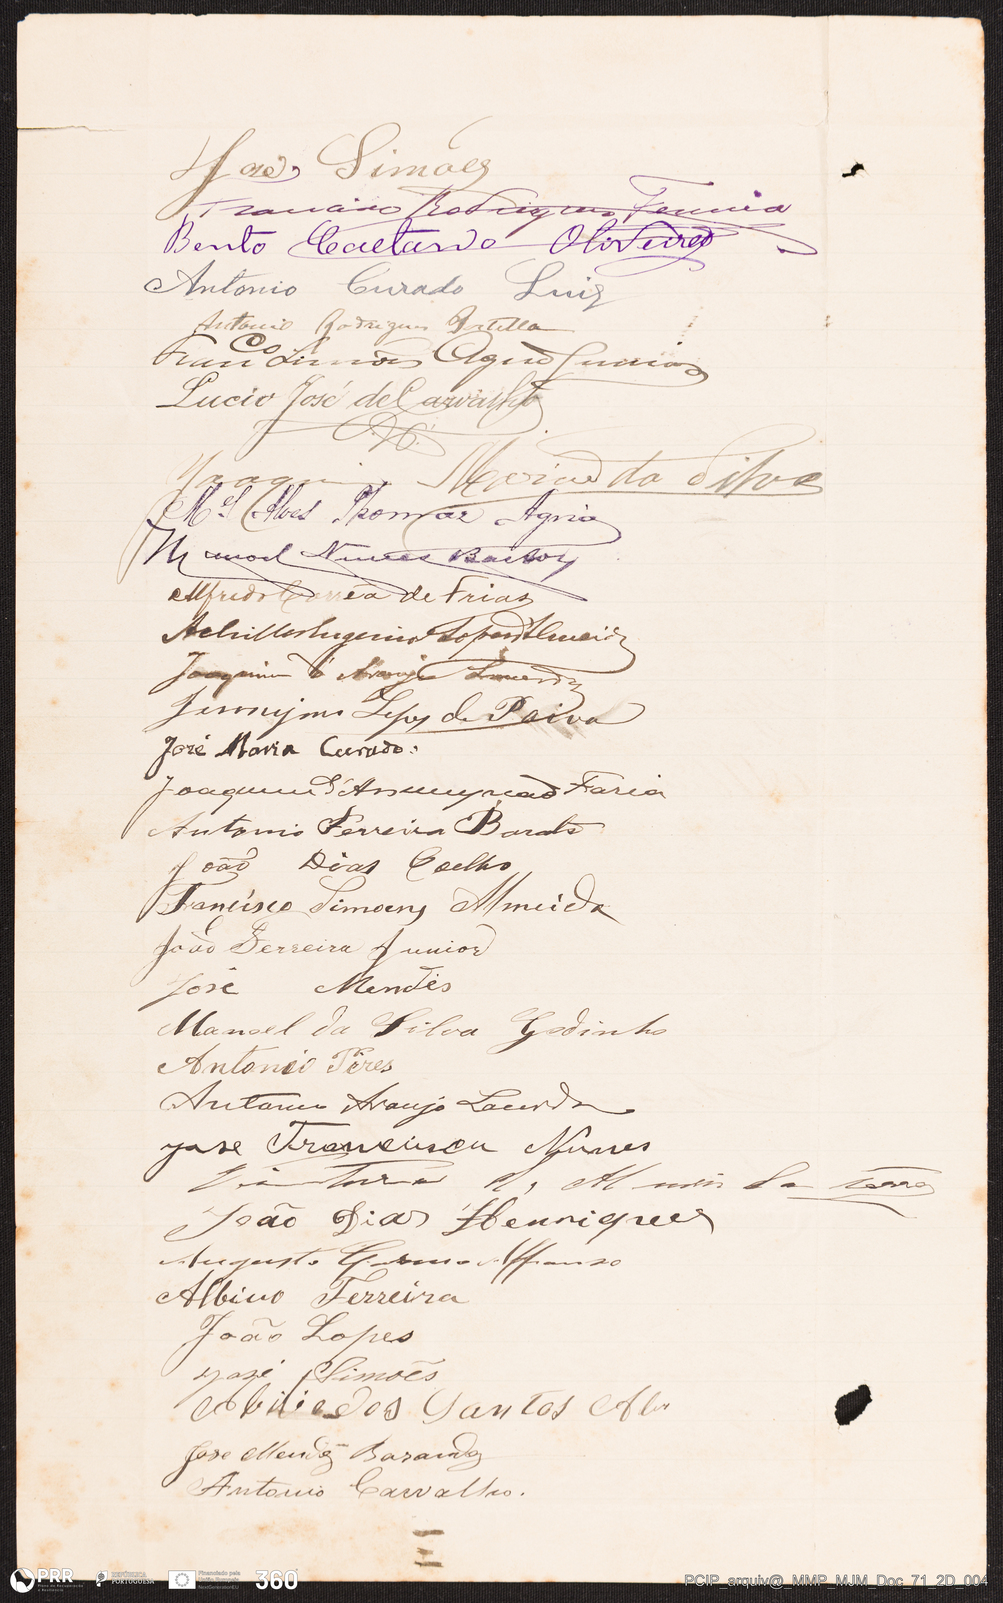 José Simões
Francisco Rodrigues Ferreira
Bento Caetano Oliveira
Antonio Curado Luiz
Antonio Rodrigues Portella
Franco Simões Agria Junior
Lucio José de Carvalho
Joaquim da Silva
Mel Alves Thomaz Agria
Manoel Nunes
Alfredo Corrêa de Frias
Achilles Eugenio Lopes d'Almeida
Joaquim d'Araujo Lacerda
Jeronymo Lopes de Paiva
José Maria Curado.
Joaquim d'Assumpção Faria
Antonio Ferreira Barata
João Dias Coelho
Francisco Simoens Almeida
João Ferreira Junior
José Mendes
Manoel da Silva Godinho
Antonio Pires
Antonio Araujo Lacerda
José Francisco Nunes
João Dias Henriques
Augusto Affonso
Albino Ferreira
João Lopes
José Simões
Abilio dos Santos
José Mendes
Antonio Carvalho.
PRR
Plano de Recuperação e Resiliência
REPÚBLICA PORTUGUESA
Financiado pela União Europeia
NextGenerationEU
360
PCIP_arquiv@_MMP_MJM_Doc_71_2D_004